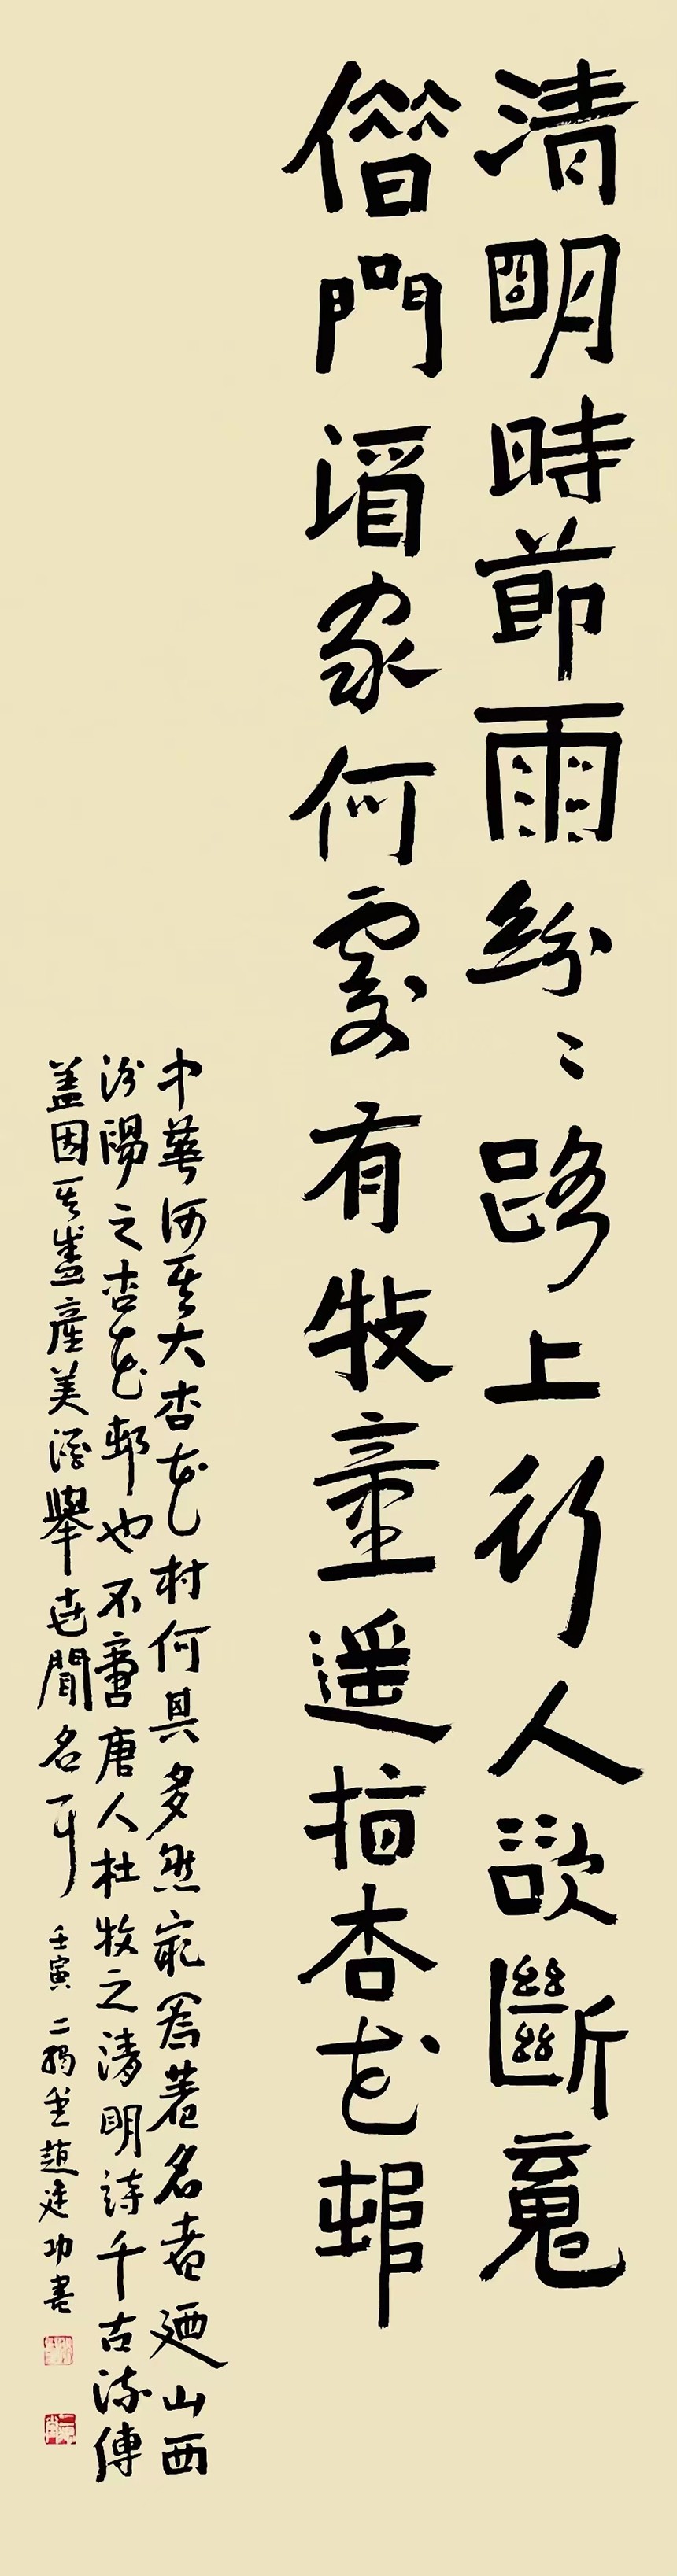 清明時節雨紛〻路上行人欲斷魂
借問酒家何處有牧童遥指杏花邨
中華何其大杏花村何其多然最為著名者廼山西
汾陽之杏花邨也不啻唐人杜牧之清明詩千古流傳
蓋因其盛產美酒舉世聞名耳 壬寅 趙 功書